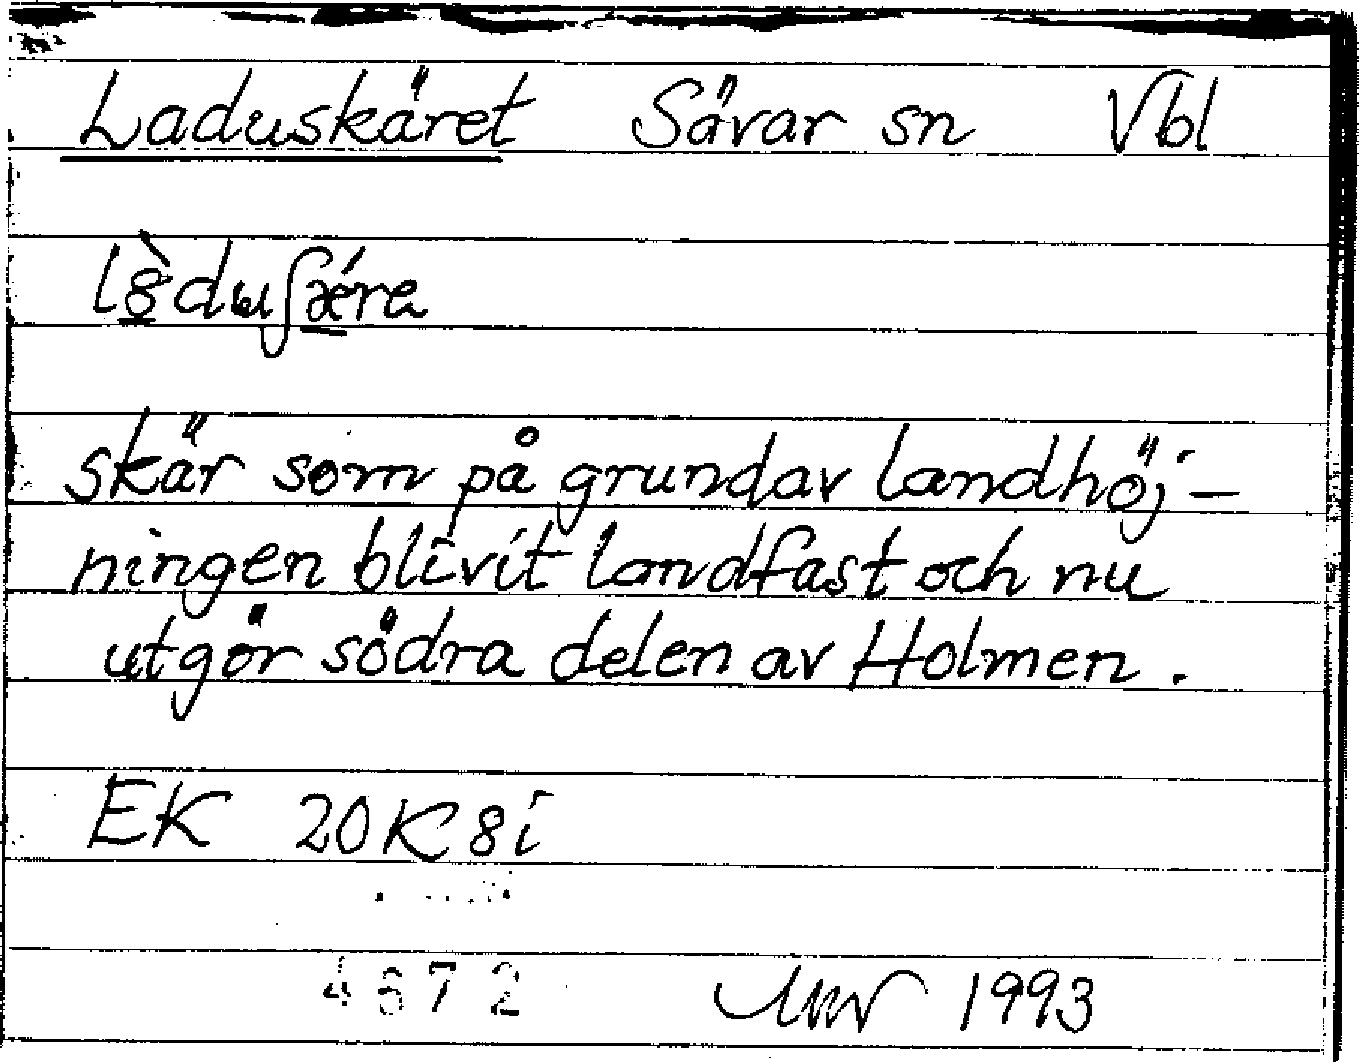 Laduskäret Sävar sn Vbl
skär som på grundav landhöj-
ningen blivit landfast och nu
utgör södra delen av Holmen.
EK 20K 8i
1993